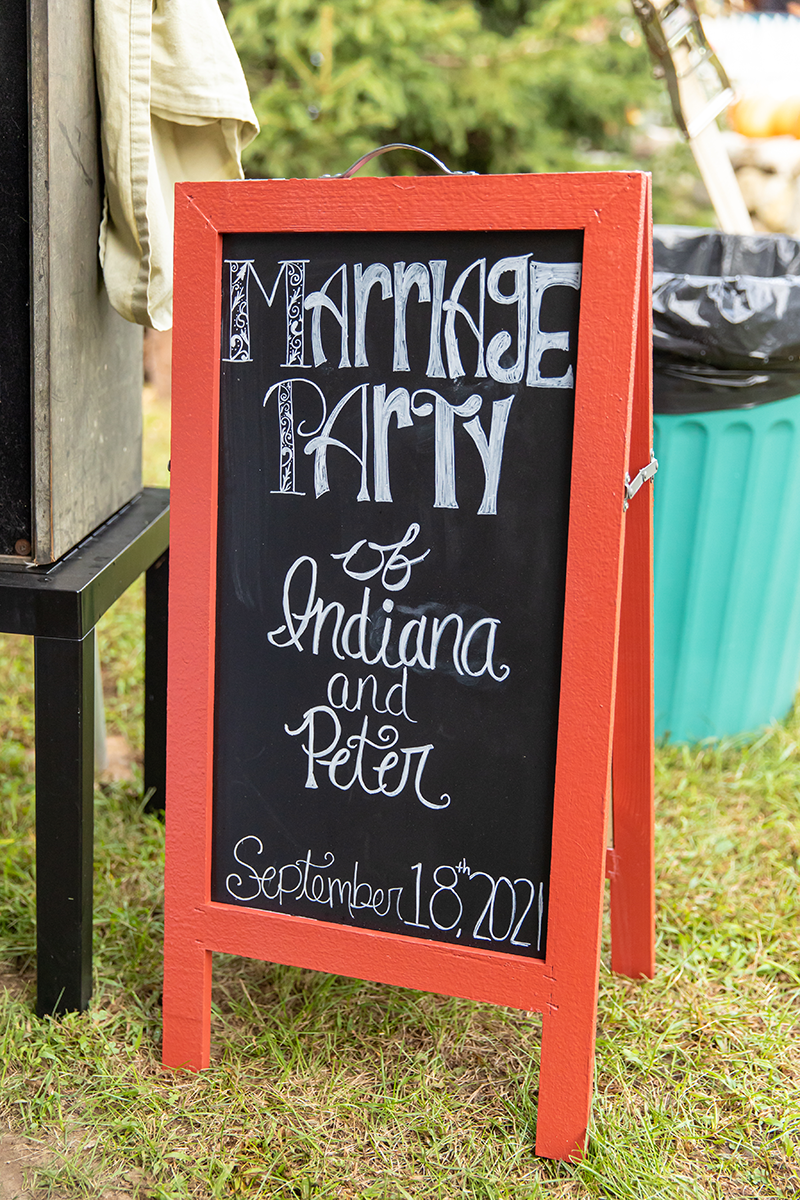 Marriage
Party
of
Indiana
and
Peter
September 18th, 2021